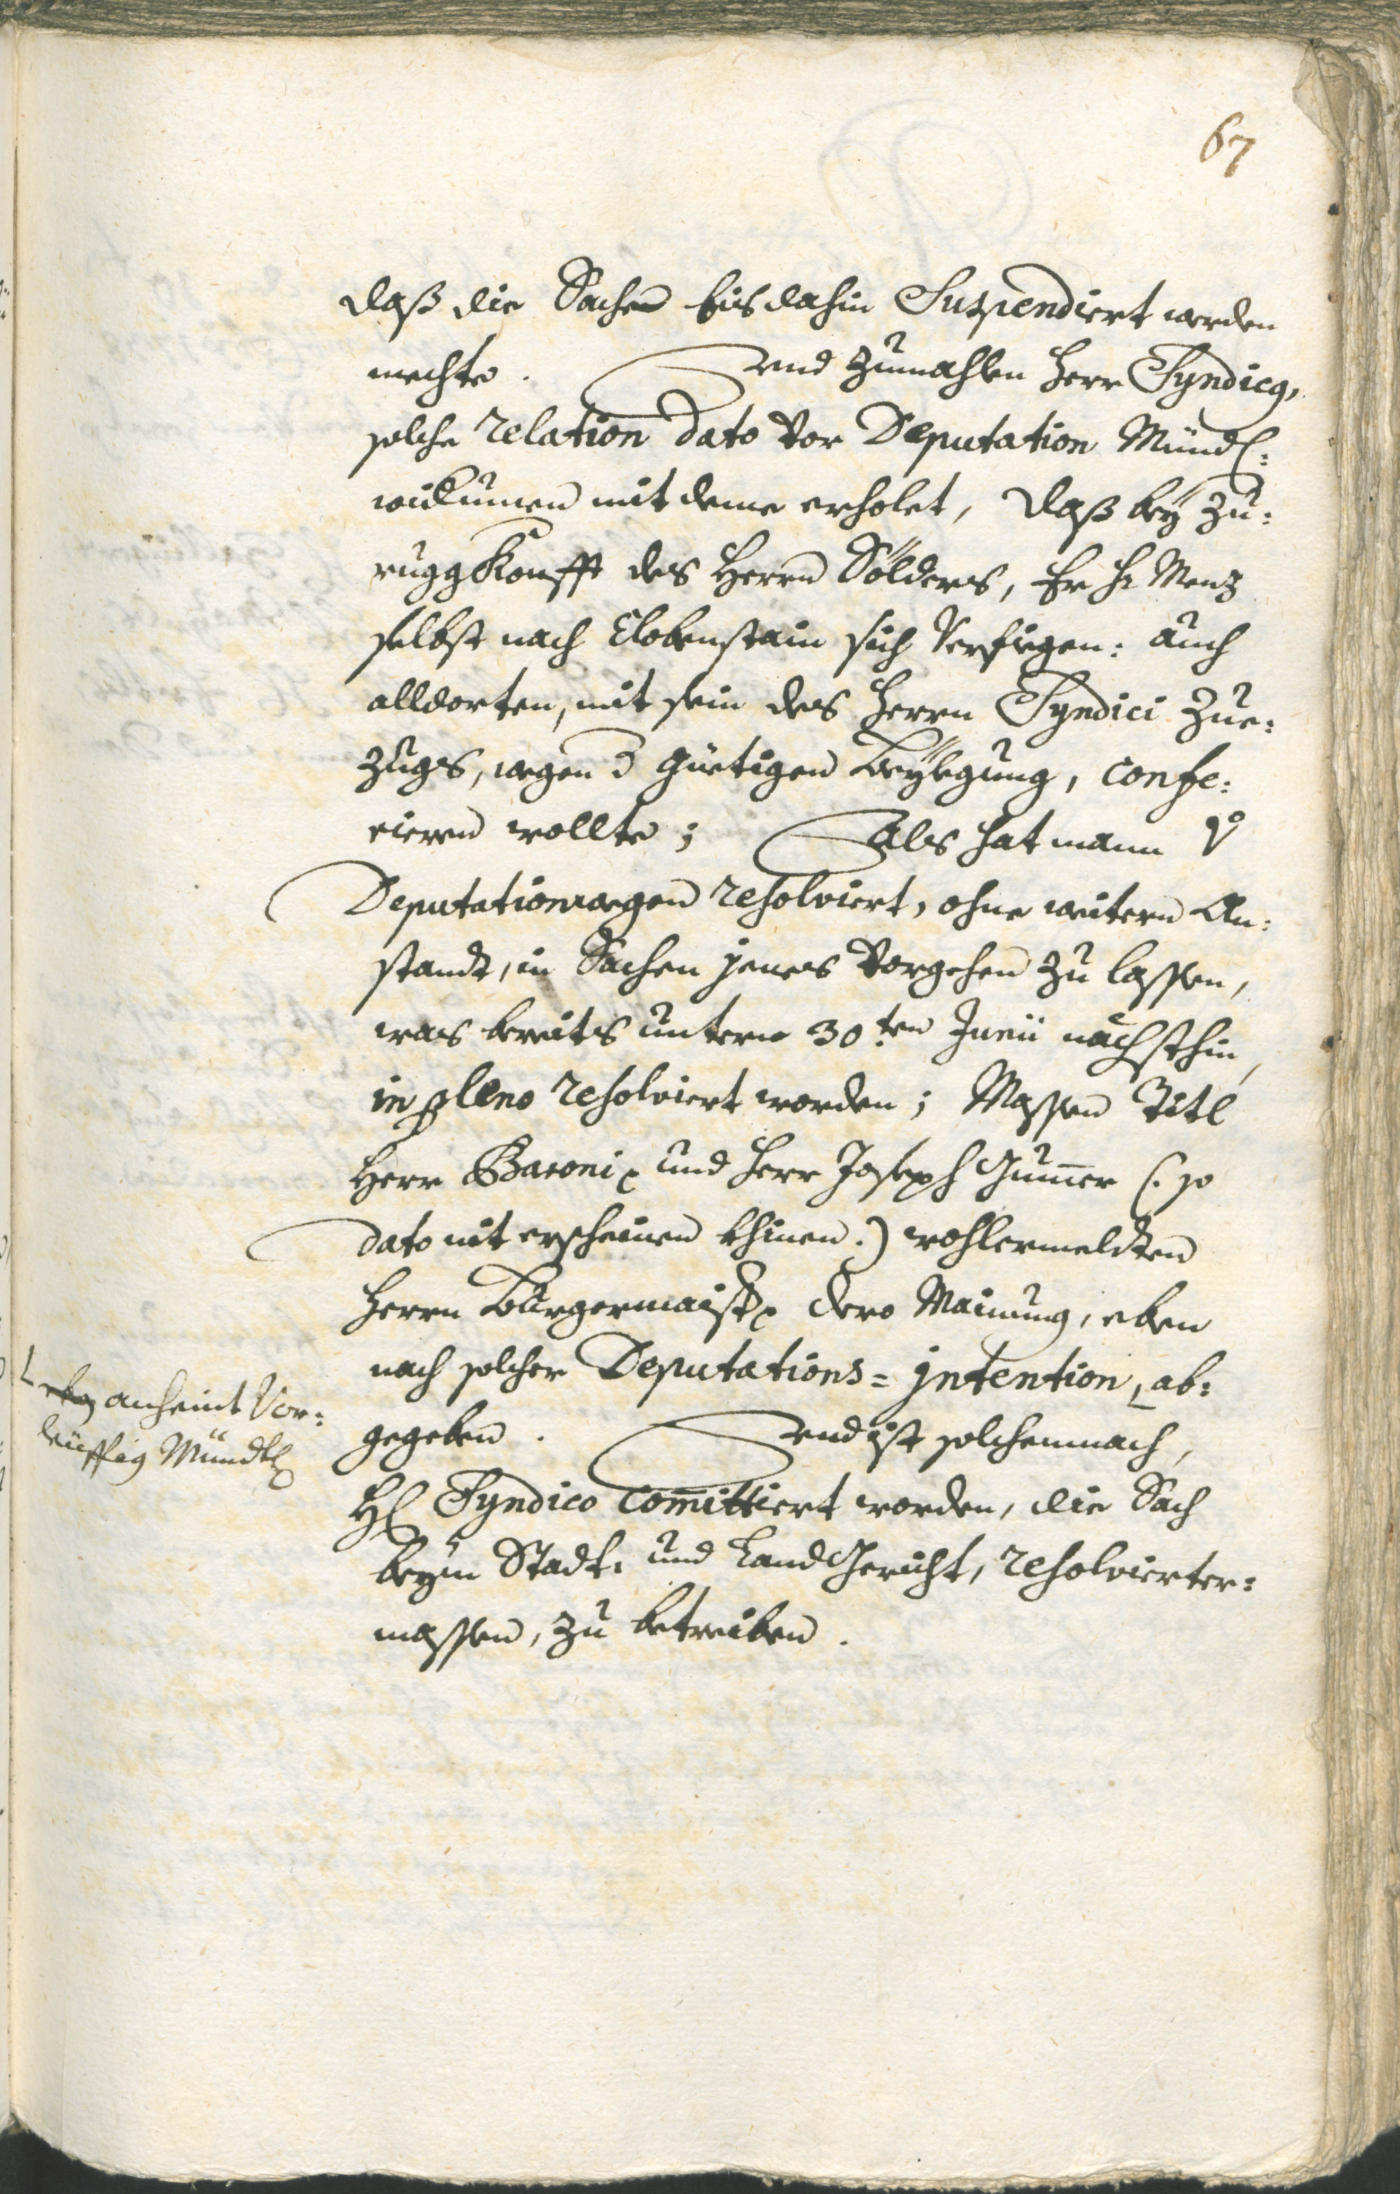 67
daß die Sachen bis dahin Suspendiert werden
mechte. Und zumahlen Herr Syndicus,
solche relation dato vor Deputation Mündl:
widerumen mit deme erholet, daß bey Zu:
ruggKonfft des Herrn Sölders, Er H: Menz
selbst nach Clobenstain sich Verfiegen: auch
alldorten, mit sein des Herrn Syndici Zue:
zugs, wegen d güetigen Beylegung, confe:
rieren wollte; Als hat mann v
Deputationwegen resolviert, ohne weitern An:
standt, in Sachen jenes Vorgehen zu lassen,
was bereits unterm 30ten Junii nächsthin,
in pleno resolviert worden; Massen Titl
Herr Baroni, und Herr Joseph Gumer (: so
dato nit erscheinen khinen :) wohlermeldten
Herrn Burgermaister dero Mainung, eben
nach solcher Deputations= jntention, ab:
anheint Vor:
leüffig Mündl
gegeben. Und ist solchemnach,
H Syndico Comittiert worden, die Sach
beym Stadt: und LandGericht, resolvierter:
massen, zu betreiben.